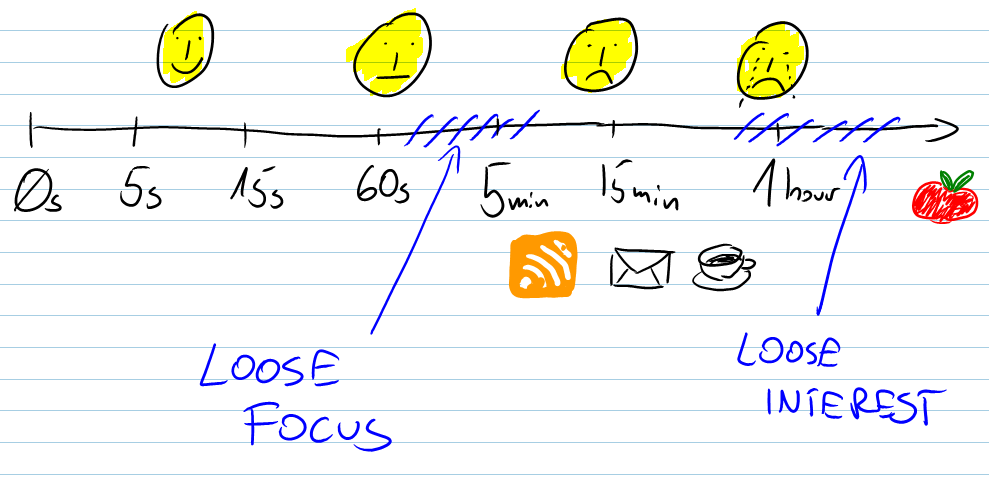 0s 5s 15s 60s 5min 15min 1 hour
LOOSE
FOCUS
LOOSE
INTEREST